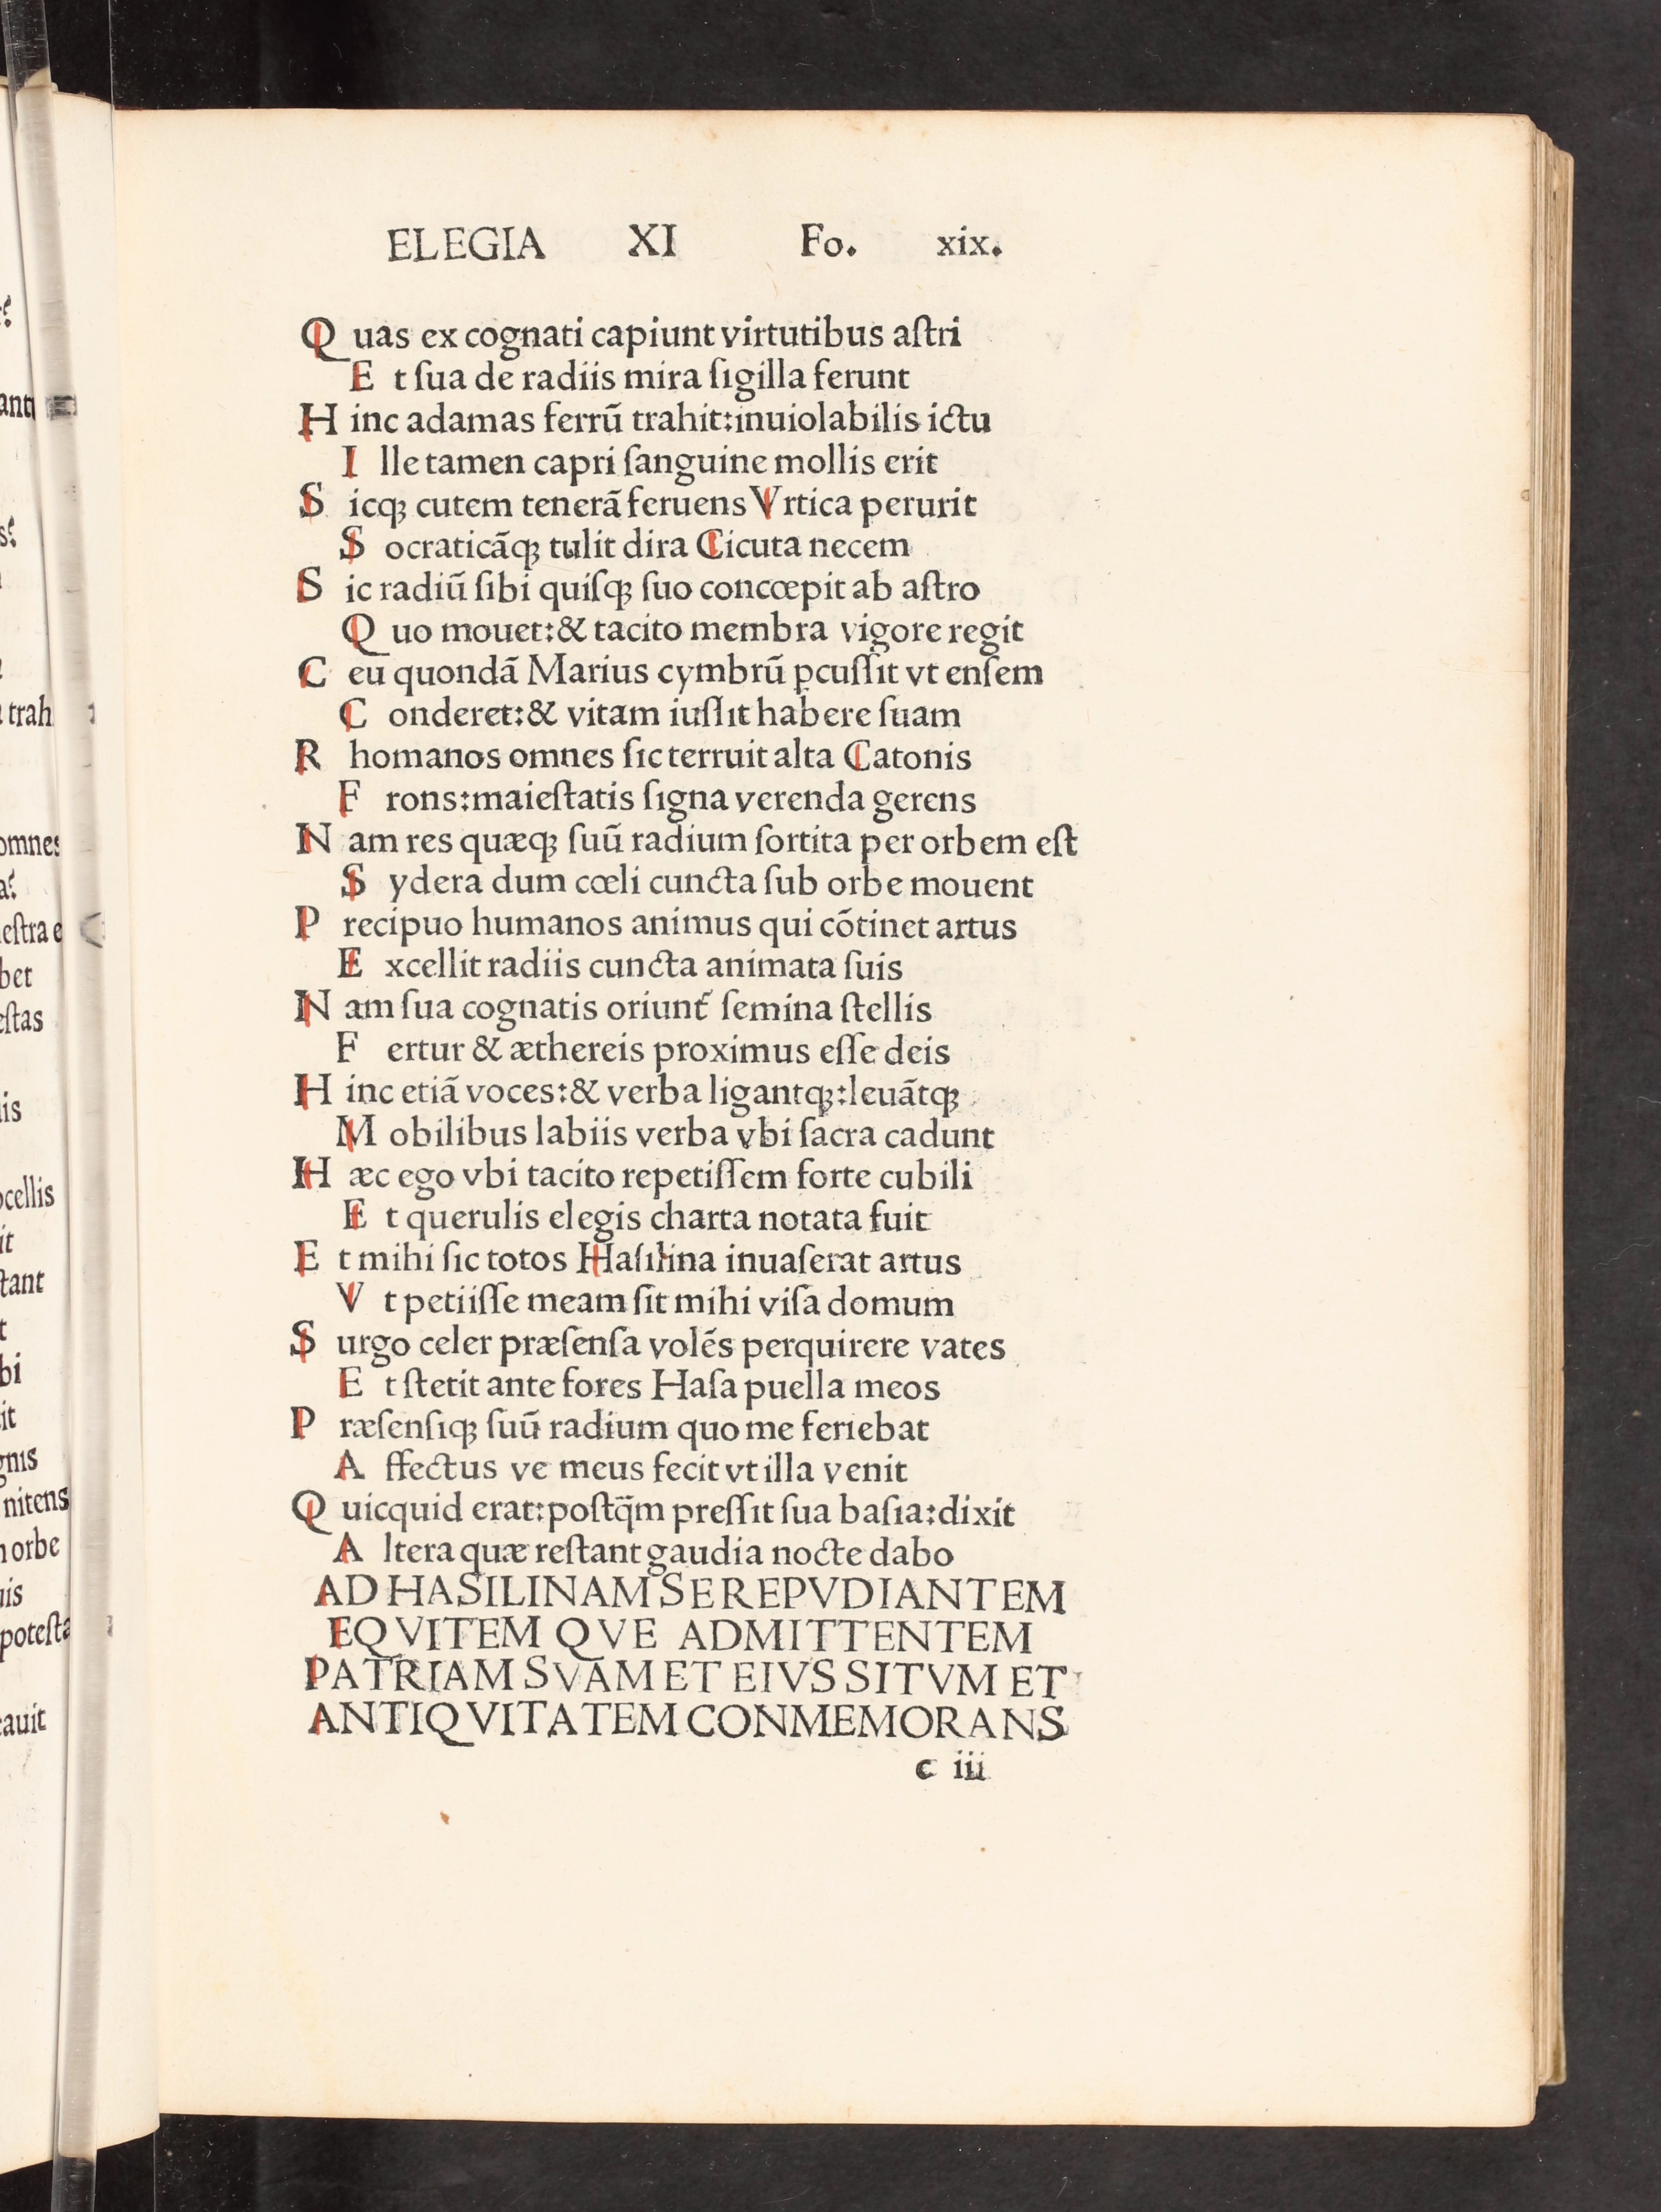 ELEGIA XI Fo. xix.
Quas ex cognati capiunt virtutibus aſtri
Et ſua de radiis mira ſigilla ferunt
Hinc adamas ferrū trahit:inuiolabilis ictu
Ille tamen capri ſanguine mollis erit
Sicqꝫ cutem tenerā feruens Vrtica perurit
Socraticāqꝫ tulit dira Cicuta necem
Sic radiū ſibi quiſqꝫ ſuo concœpit ab aſtro
Quo mouet:& tacito membra vigore regit
Ceu quondā Marius cymbrū ꝑcuſſit vt enſem
Conderet:& vitam iuſſit habere ſuam
Rhomanos omnes ſic terruit alta Catonis
Frons:maieſtatis ſigna verenda gerens
Nam res quæqꝫ ſuū radium ſortita per orbem eſt
Sydera dum cœli cuncta ſub orbe mouent
Precipuo humanos animus qui cōtinet artus
Excellit radiis cuncta animata ſuis
Nam ſua cognatis oriunt᷑ ſemina ſtellis
Fertur & æthereis proximus eſſe deis
Hinc etiā voces:& verba ligantqꝫ:leuātqꝫ
Mobilibus labiis verba vbi ſacra cadunt
Hæc ego vbi tacito repetiſſem forte cubili
Et querulis elegis charta notata fuit
Et mihi ſic totos Haſilina inuaſerat artus
Vt petiiſſe meam ſit mihi viſa domum
Surgo celer præſenſa volēs perquirere vates
Et ſtetit ante fores Haſa puella meos
Præſenſiqꝫ ſuū radium quo me feriebat
Affectus ve meus fecit vt illa venit
Quicquid erat:poſtq̄m preſſit ſua baſia:dixit
Altera quæ reſtant gaudia nocte dabo
AD HASILINAM SE REPVDIANTEM
EQVITEM QVE ADMITTENTEM
PATRIAM SVAM ET EIVS SITVM ET
ANTIQVITATEM CONMEMORANS
c iii